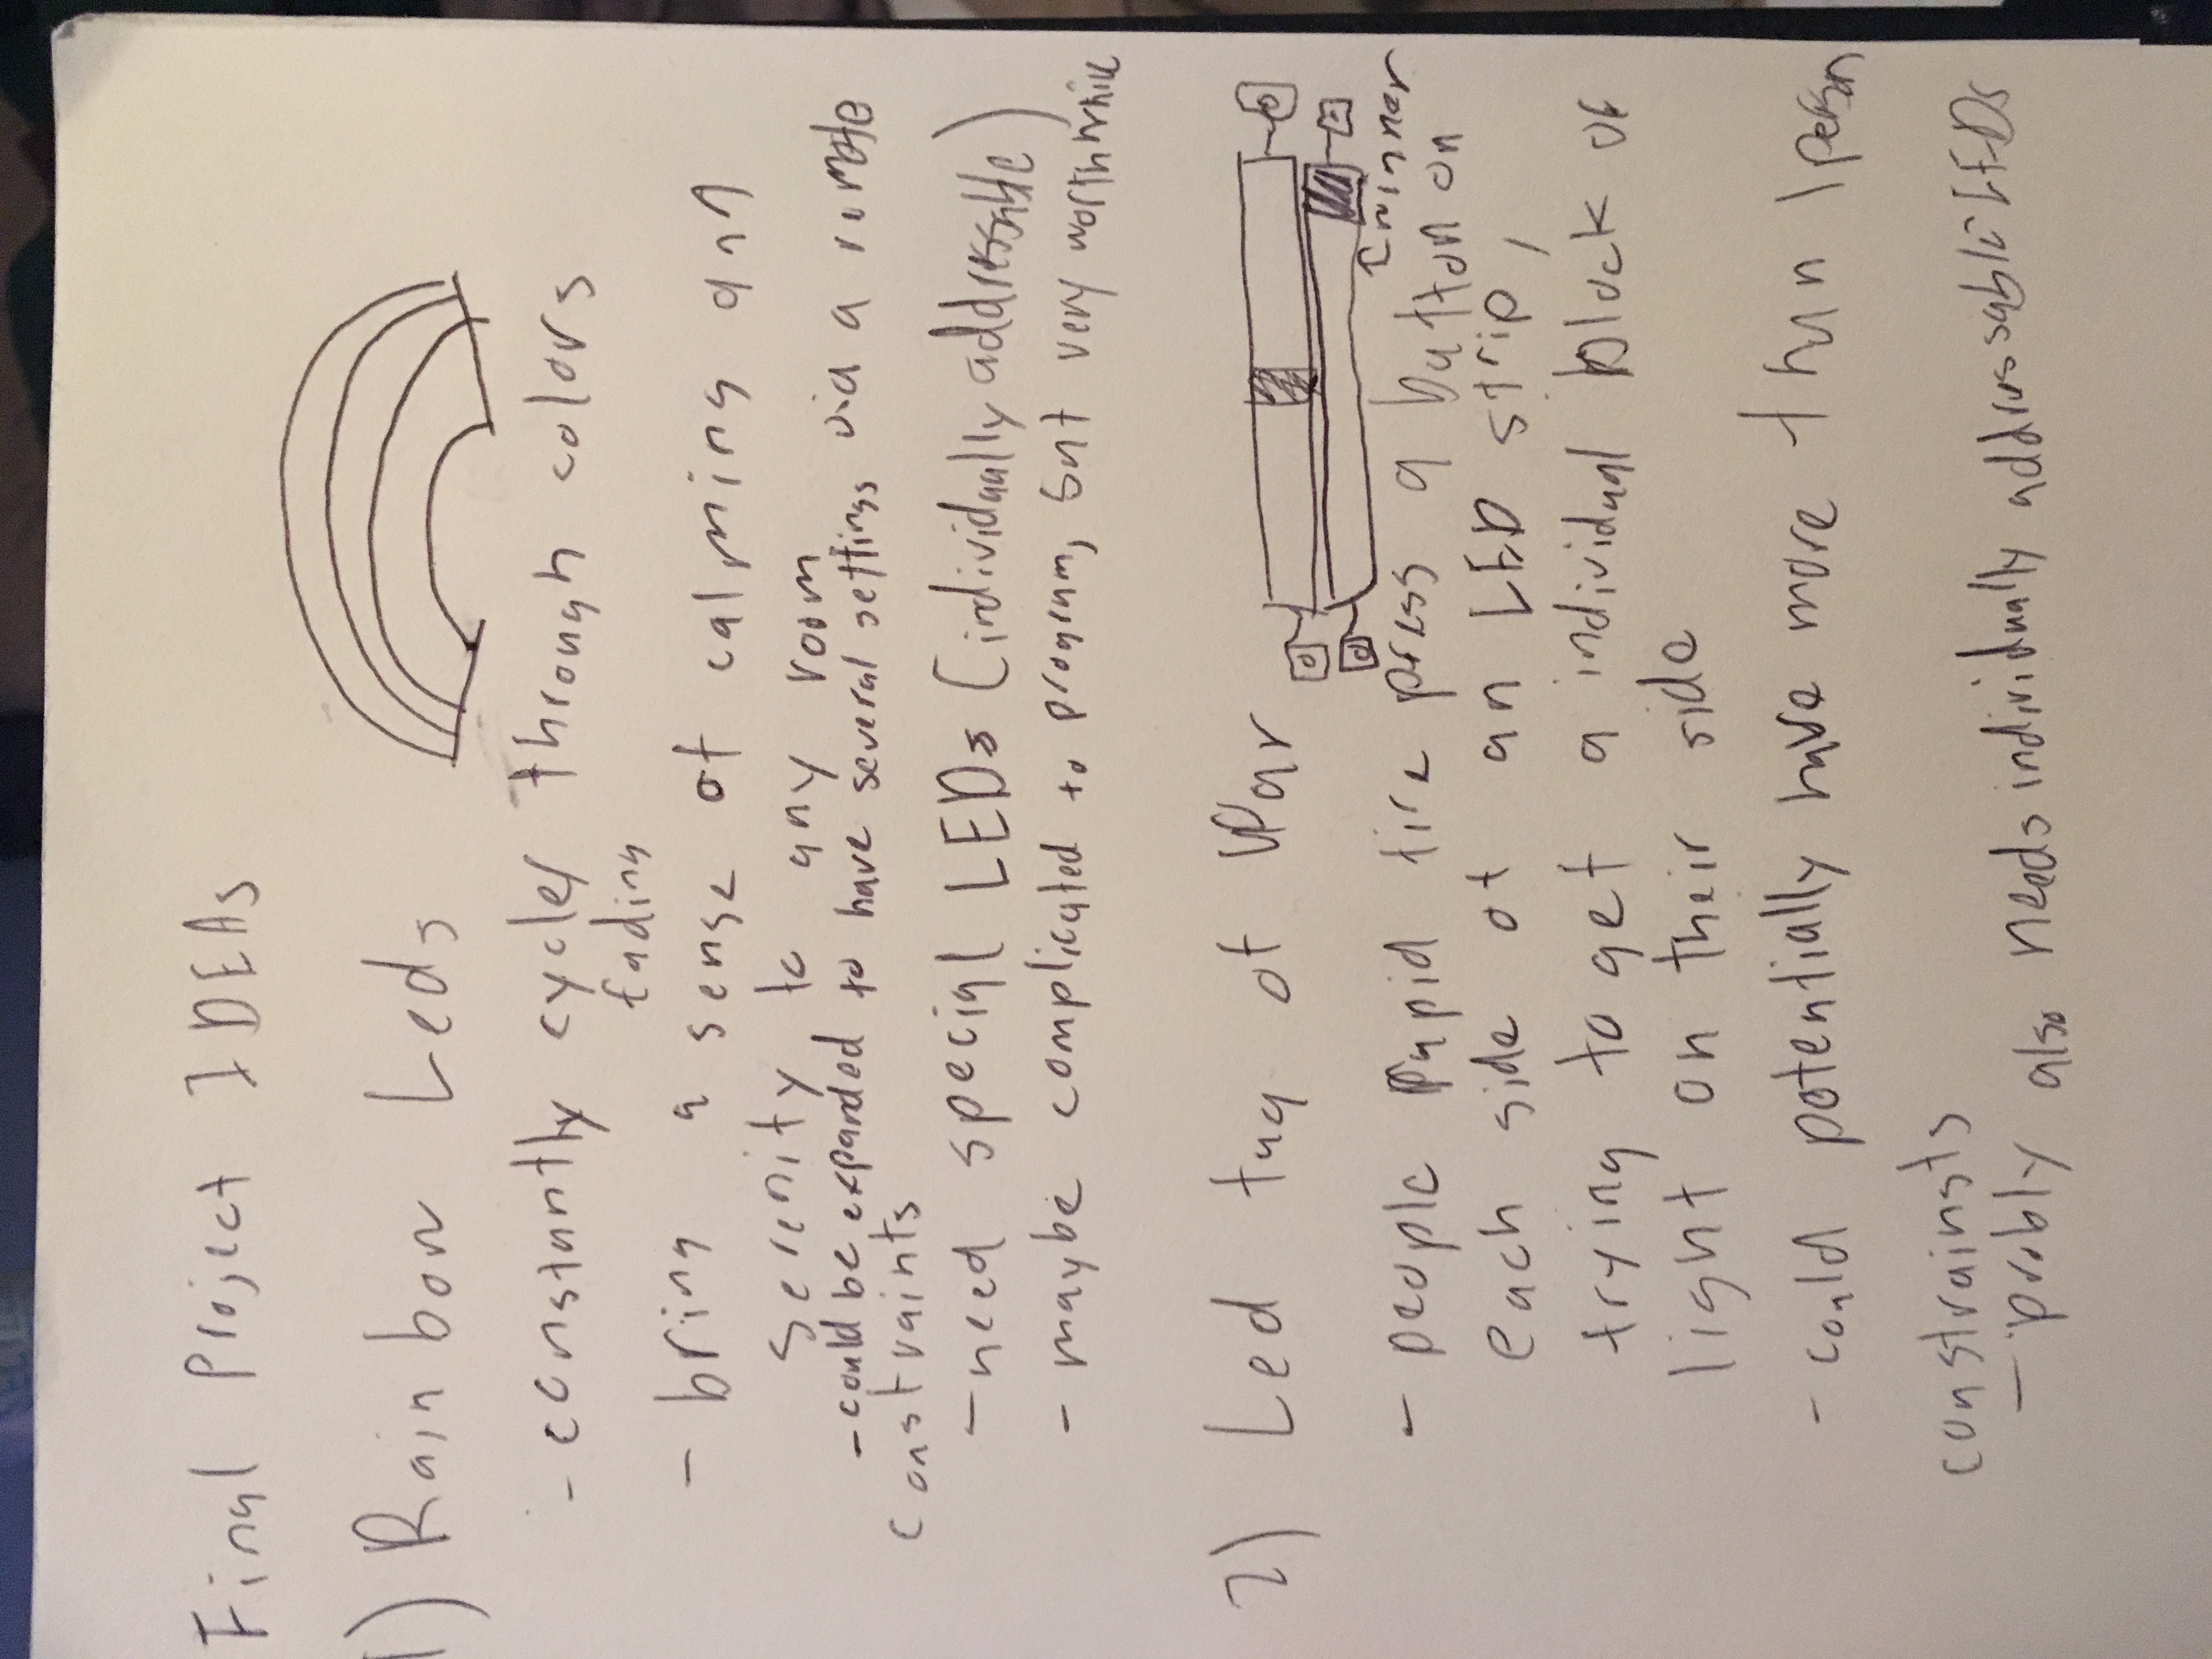 Final Project IDEAs
1) Rainbow Leds
- constantly cycles through colors
fading
- bring a sense of calming and
serenity to any room
- could be expanded to have several settings via a remote
constraints
- need special LEDs (individually addressable)
- maybe complicated to program, but very worthwhile
2) Led tug of War
winner
- people rapid fire press a button on
each side of an LED strip,
trying to get a individual block of
light on their side
- could potentially have more than 1 person
constrainsts
- probly also needs individually addressable LEDs